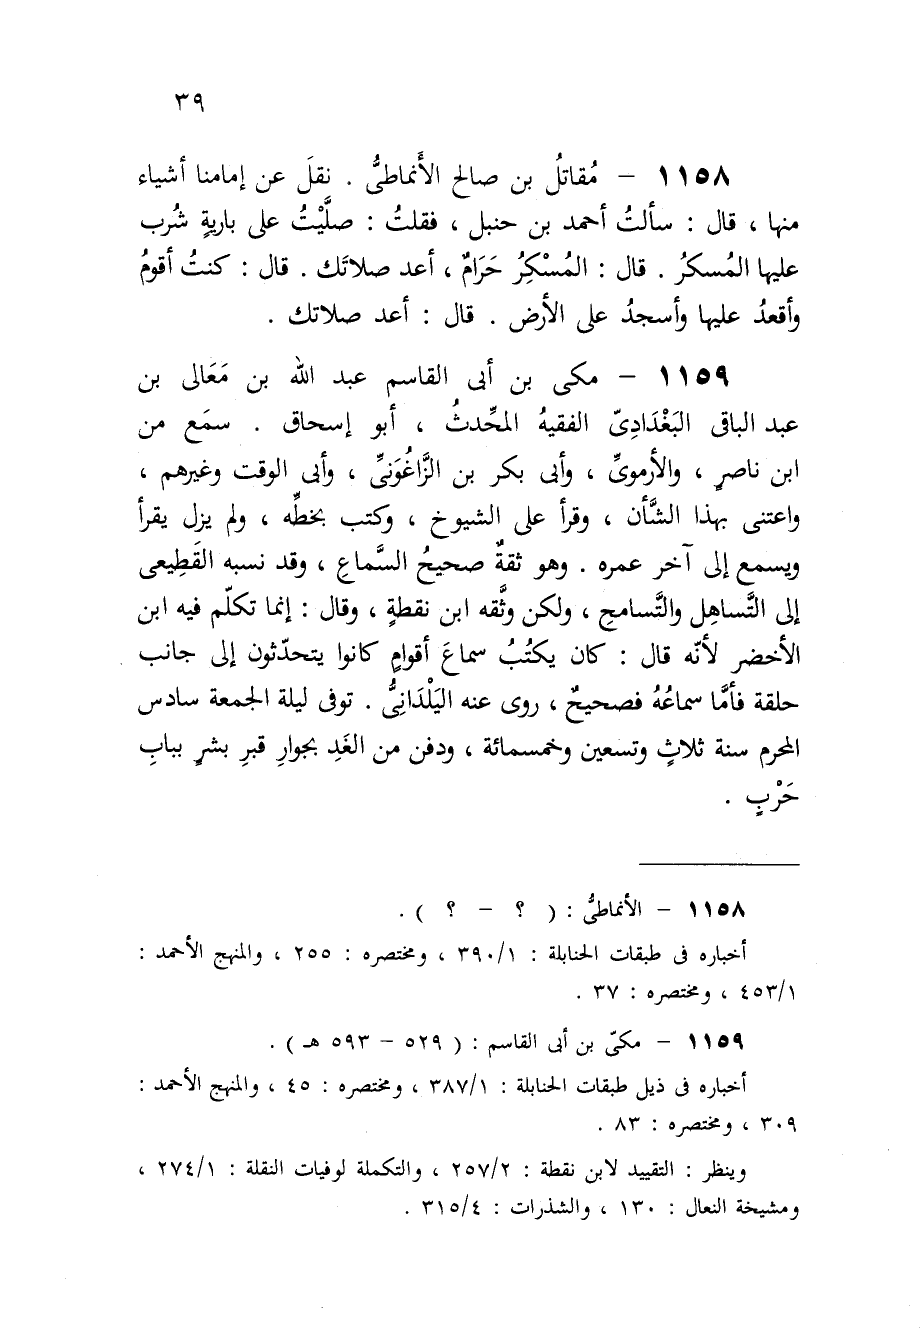 ٣٩
١١٥٨ – مُقاتلُ بن صالح الأَنماطىُّ . نقلَ عن إمامنا أشياء
منها ، قال : سألتُ أحمد بن حنبل ، فقلتُ : صلَّيْتُ على باريةٍ شُرب
عليها المُسكرُ . قال : المُسْكِرُ حَرَامٌ ، أعد صلاتَك . قال : كنتُ أقومُ
وأقعدُ عليها وأسجدُ على الأرض . قال : أعد صلاتك .
١١٥٩ – مكى بن أبى القاسم عبد الله بن مَعَالى بن
عبد الباقى البَغْدَادِىّ الفقيهُ المحِّدثُ ، أبو إسحاق . سمَع من
ابن ناصرٍ ، والأرموىِّ ، وأبى بكر بن الزَّاغُوَنىِّ ، وأبى الوقت وغيرهم ،
واعتنى بهذا الشَّأن ، وقرأ على الشيوخ ، وكتب بخطِّه ، ولم يزل يقرأ
ويسمع إلى آخر عمره . وهو ثقةٌ صحيحُ السَّماعِ ، وقد نسبه القَطِيعى
إلى التَّساهلِ والتَّسامحِ ، ولكن وثَّقه ابن نقطةٍ ، وقال : إنما تكلّم فيه ابن
الأخضر لأنّه قال : كان يكتُبُ سماعَ أقوامٍ كانوا يتحدّثون إلى جانب
حلقة فأمَّا سماعُهُ فصحيحٌ ، روى عنه اليَلْدَانِىُّ . توفى ليلة الجمعة سادس
المحرم سنة ثلاثٍ وتسعين وخمسمائة ، ودفن من الغَدِ بجوارِ قبرِ بشرٍ ببابِ
حَرْبٍ .
١١٥٨ – الأنماطىُّ : ( ؟ – ؟ ) .
أخباره فى طبقات الحنابلة : ٣٩٠/١ ، ومختصره : ٢٥٥ ، والمنهج الأحمد :
٤٥٣/١ ، ومختصره : ٣٧ .
١١٥٩ – مكىّ بن أبى القاسم : ( ٥٢٩ – ٥٩٣ هـ ) .
أخباره فى ذيل طبقات الحنابلة : ٣٨٧/١ ، ومختصره : ٤٥ ، والمنهج الأحمد :
٣٠٩ ، ومختصره : ٨٣ .
وينظر : التقييد لابن نقطة : ٢٥٧/٢ ، والتكملة لوفيات النقلة : ٢٧٤/١ ،
ومشيخة النعال : ١٣٠ ، والشذرات : ٣١٥/٤ .